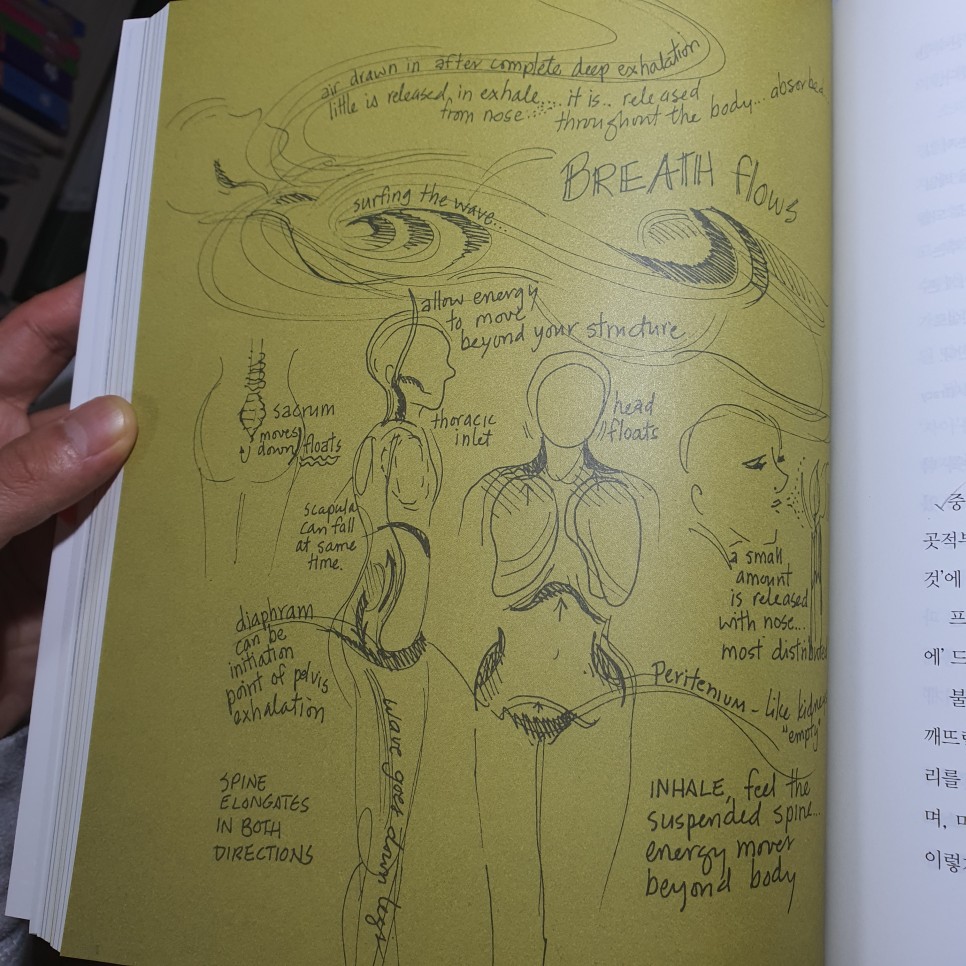 air drawn in after complete deep exhalation
little is released in exhale.... it is.. released
from nose...... throughout the body... absorbed
BREATH flows
surfing the wave...
allow energy
to move
beyond your structure
sacrum
moves
down
floats
thoracic
inlet
head
floats
scapula
can fall
at same
time.
a small
amount
is released
with nose...
most distributed
diaphram
can be
initiation
point of pelvis
exhalation
Peritenium - like kidney
"empty"
wave goes down legs
SPINE
ELONGATES
IN BOTH
DIRECTIONS
INHALE, feel the
suspended spine...
energy moves
beyond body
중
곳적부
것'에
프
에' 드
불
깨뜨
리를
며,
이렇